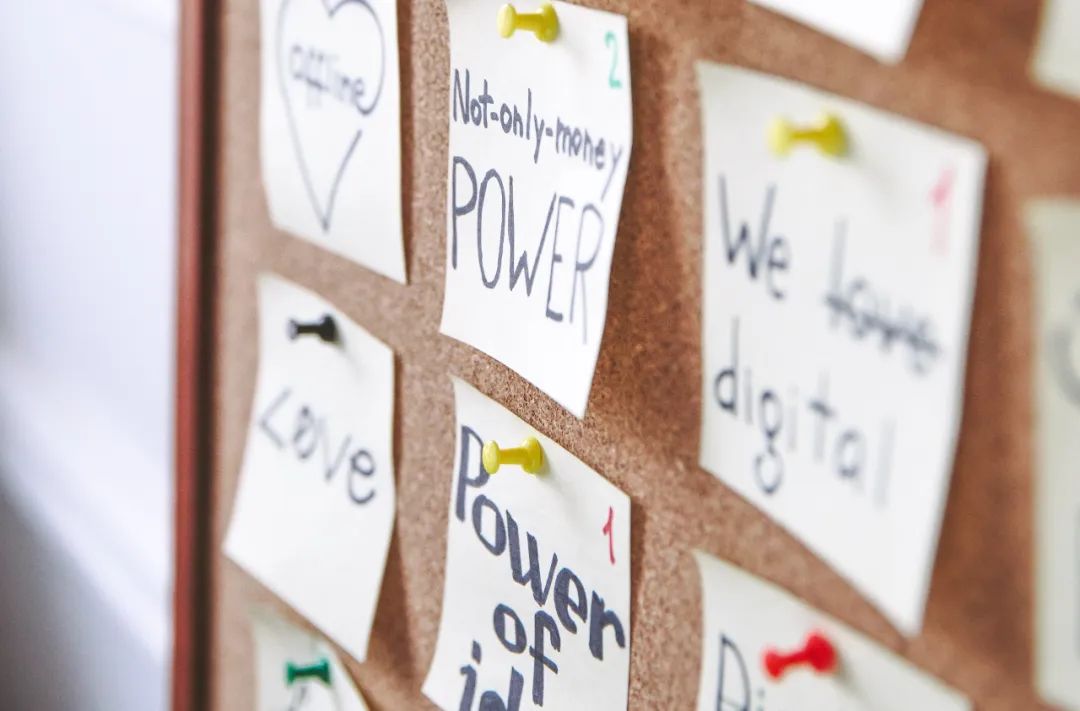 offline
2
Not-only-money
POWER
1
We love
digital
Love
1
Power
of